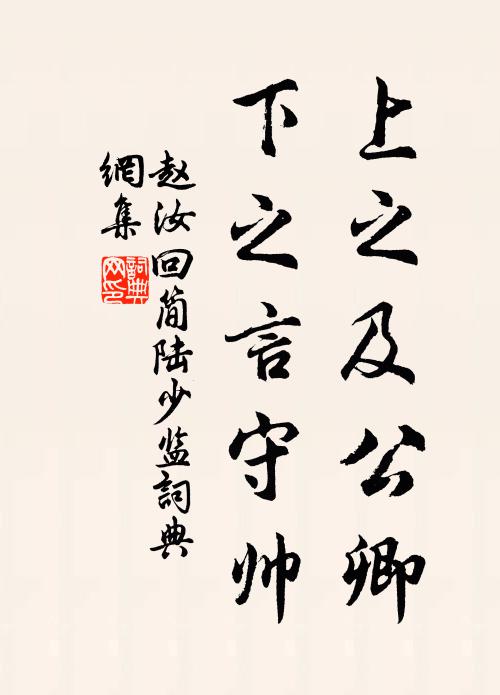 上之及公卿
下之言守帅
赵汝回简陆少监詞典
網集
詞典网印